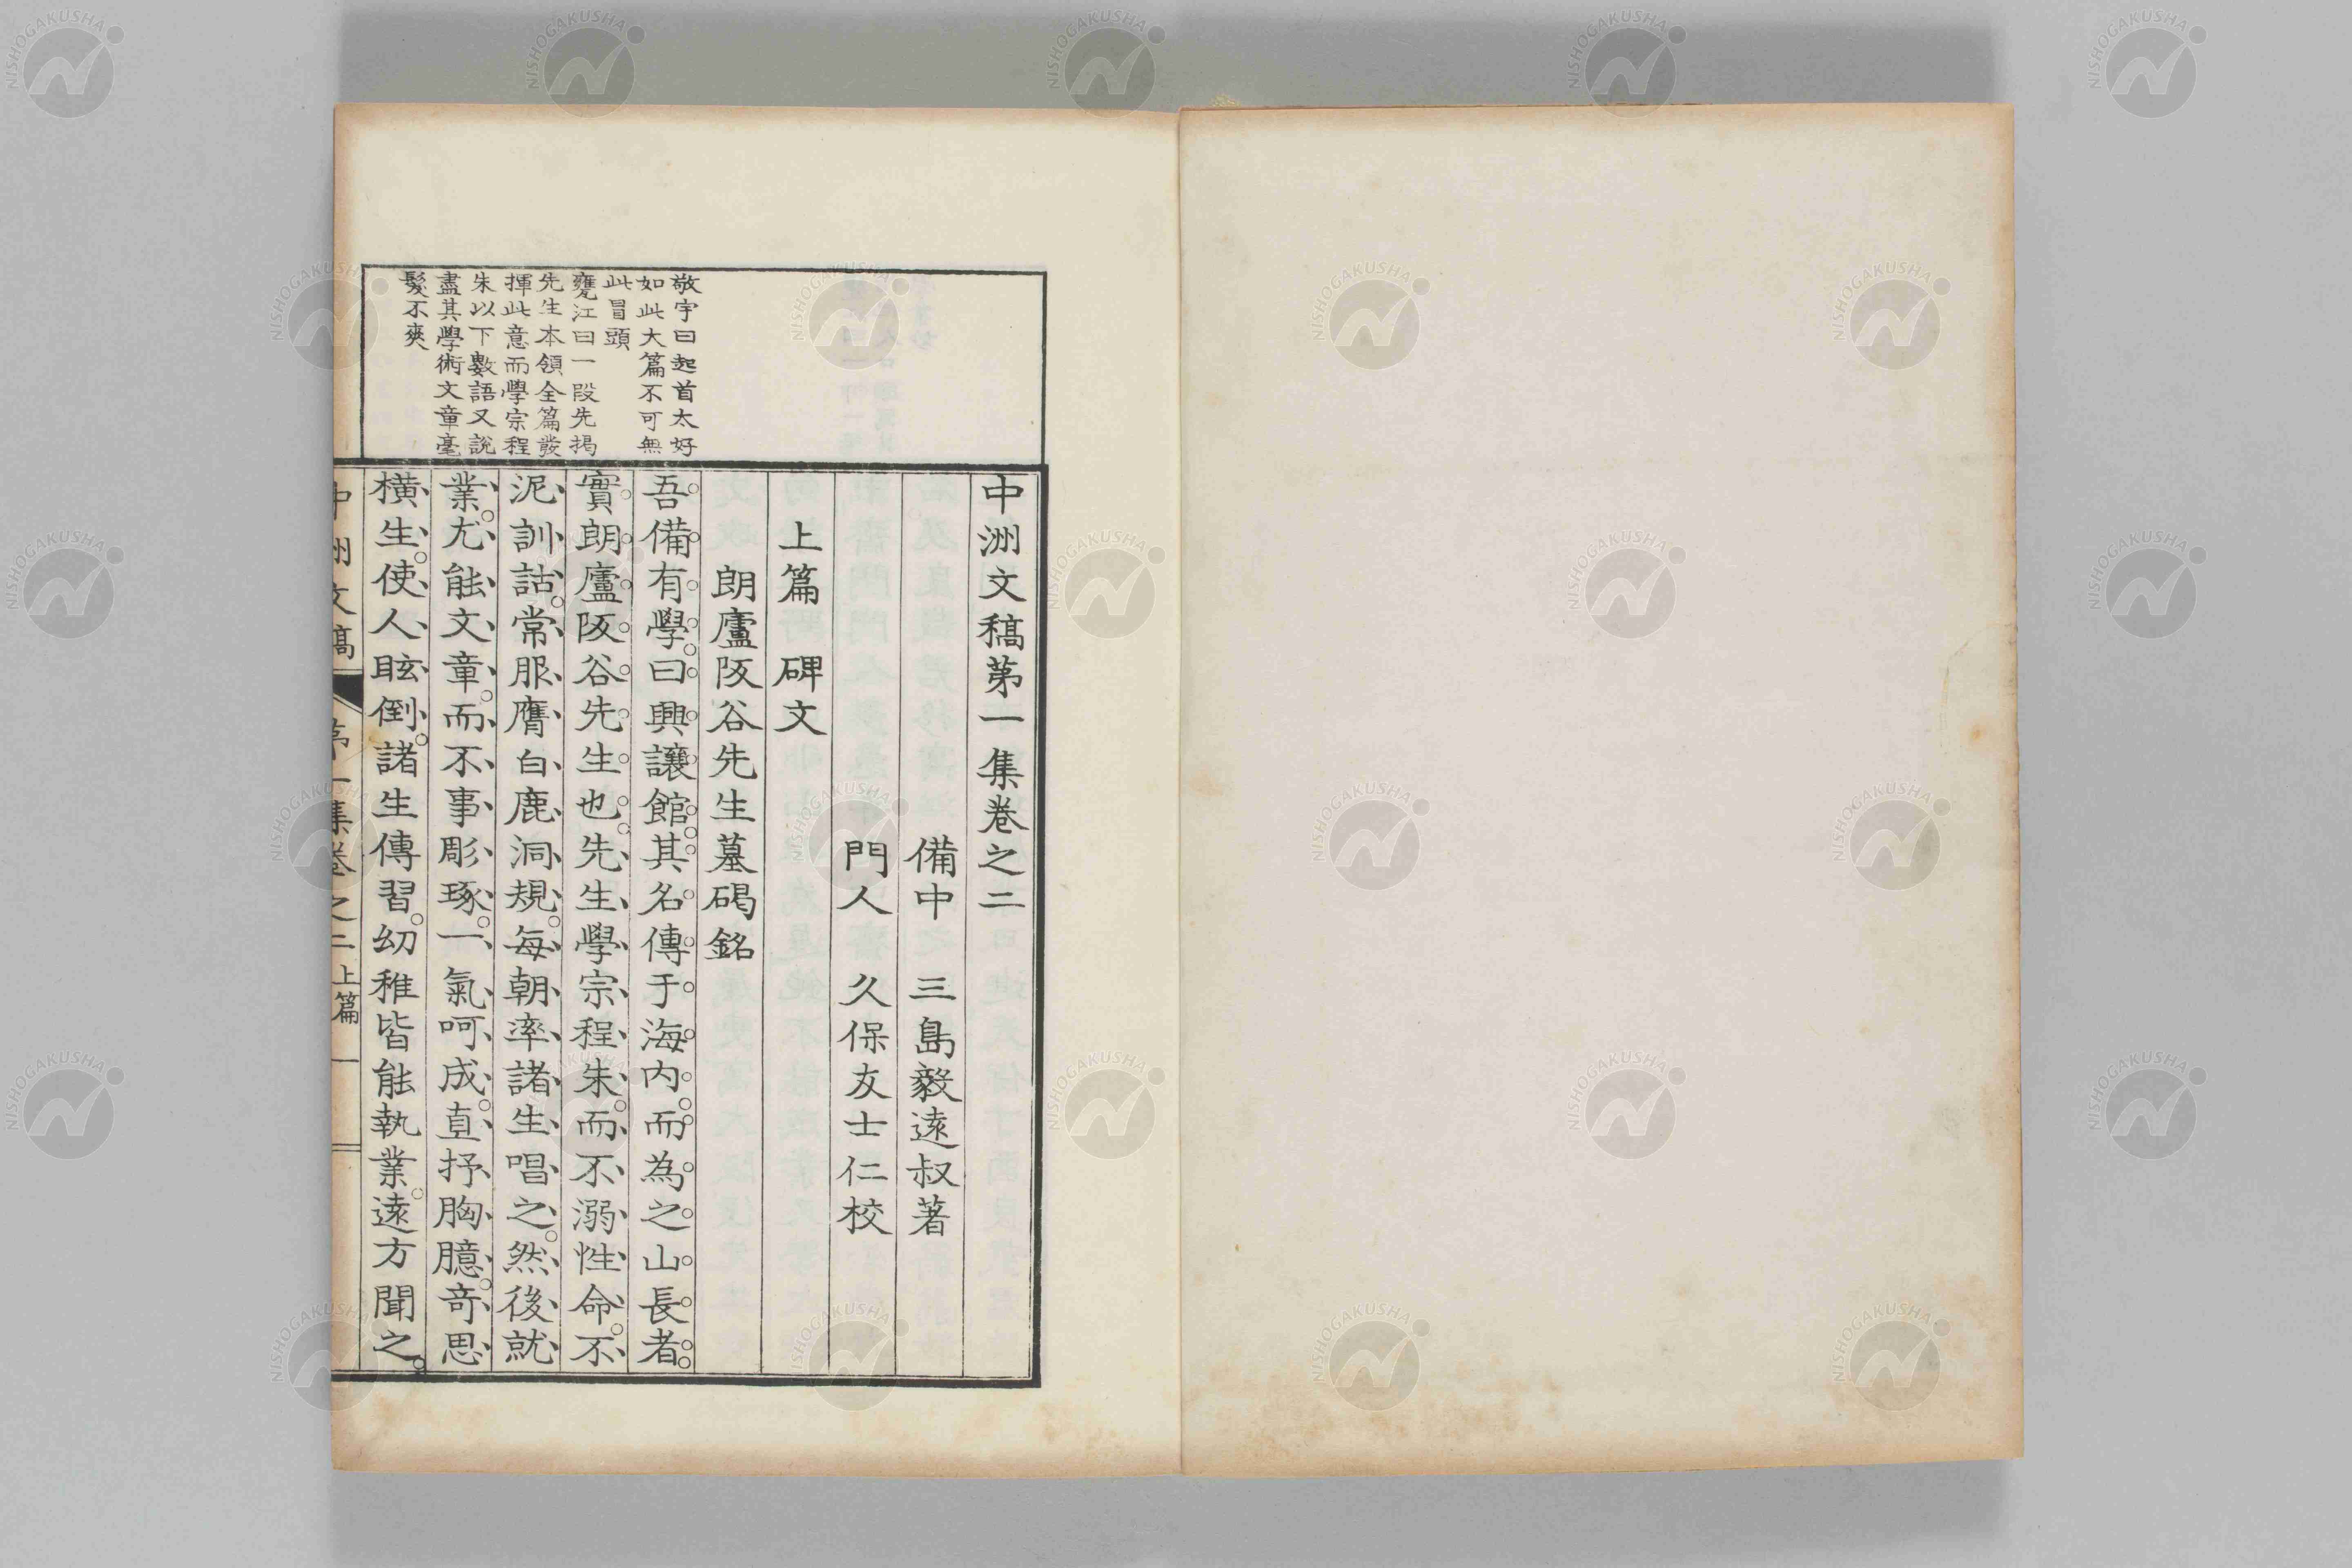 敬宇曰起首太好
如此大篇不可無
此冒頭
甕江曰一段先揭
先生本領全篇發
揮此意而學宗程
朱以下數語又說
盡其學術文章毫
髮不爽
中洲文稿第一集卷之二
備中 三島毅遠叔著
門人 久保友士仁校
上篇 碑文
朗廬阪谷先生墓碣銘
吾備有學。曰興讓館。其名傳于海内。而為之山長者。
實朗廬阪谷先生也。先生學宗程朱。而不溺性命。不
泥訓詁。常服膺白鹿洞規。每朝率諸生唱之。然後就
業。尤能文章。而不事彫琢。一氣呵成。直抒胸臆。奇思
橫生。使人眩倒。諸生傳習。幼稚皆能執業。遠方聞之。
中洲文稿 第一集卷之二 上篇 一
NISHOGAKUSHA